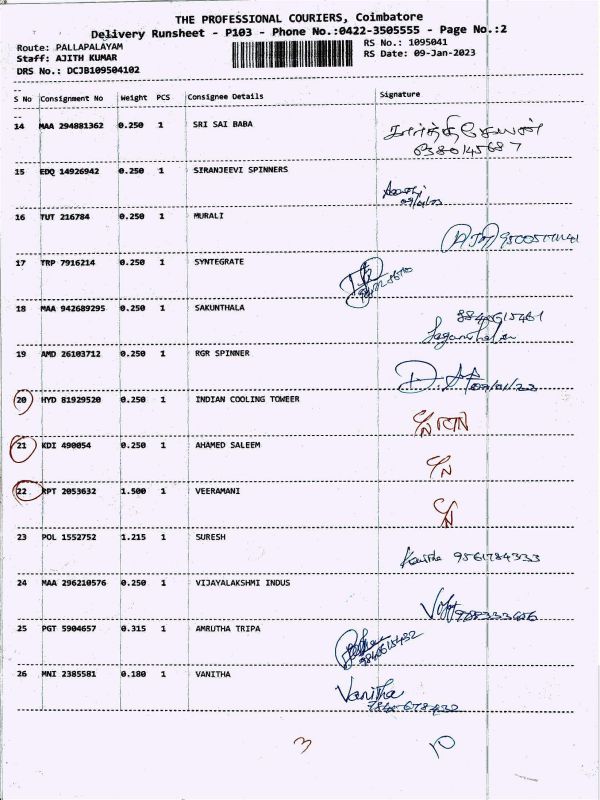 THE PROFESSIONAL COURIERS, Coimbatore
Delivery Runsheet - P103 - Phone No.:0422-3505555 - Page No.:2
Route: PALLAPALAYAM RS No.: 1095041
Staff: AJITH KUMAR RS Date: 09-Jan-2023
DRS No.: DCJB109504102
S No Consignment No Weight PCS Consignee Details Signature
14 MAA 294881362 0.250 1 SRI SAI BABA
6380145687
15 EDQ 14926942 0.250 1 SIRANJEEVI SPINNERS
16 TUT 216784 0.250 1 MURALI
17 TRP 7916214 0.250 1 SYNTEGRATE
18 MAA 942689295 0.250 1 SAKUNTHALA
19 AMD 26103712 0.250 1 RGR SPINNER
09/01/23
20 HYD 81929520 0.250 1 INDIAN COOLING TOWEER
21 KDI 490054 0.250 1 AHAMED SALEEM
22 RPT 2053632 1.500 1 VEERAMANI
23 POL 1552752 1.215 1 SURESH
Kavitha 9561784333
24 MAA 296210576 0.250 1 VIJAYALAKSHMI INDUS
25 PGT 5904657 0.315 1 AMRUTHA TRIPA
26 MNI 2385581 0.180 1 VANITHA
Vanitha
3 10